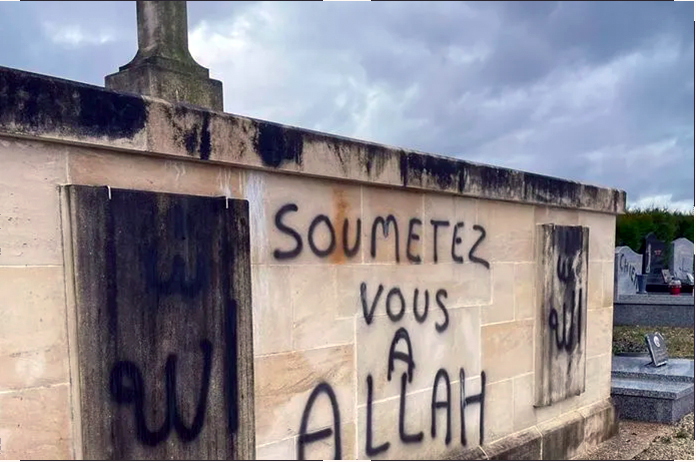 SOUMETEZ
VOUS
A
ALLAH
الله